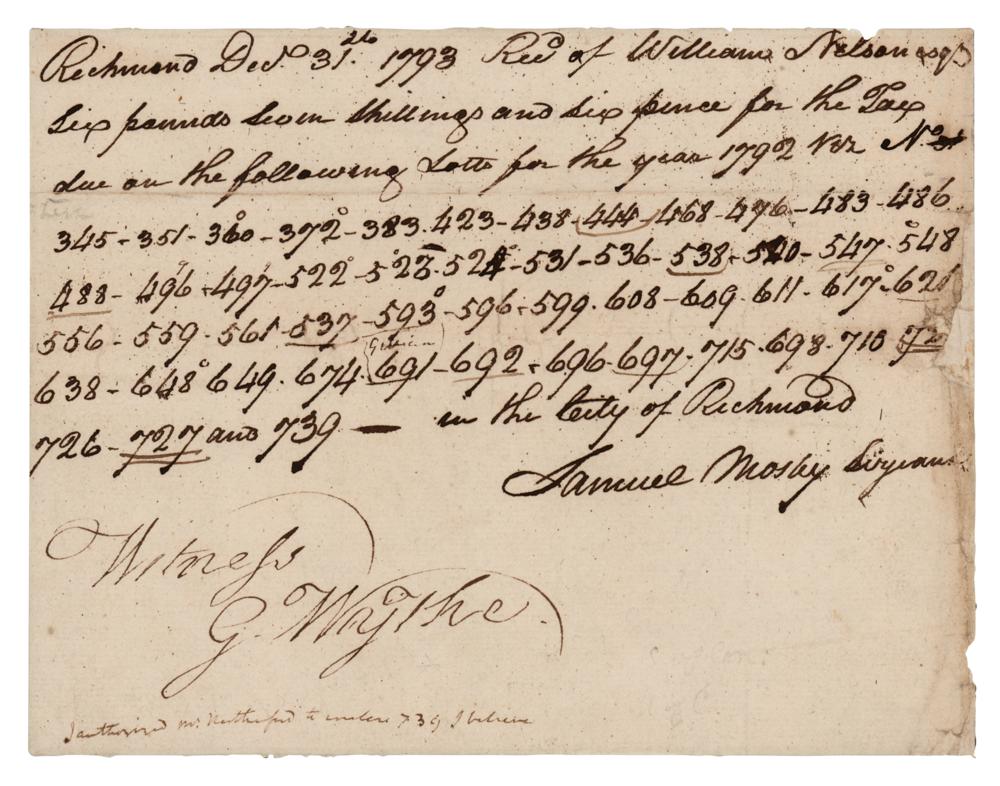 Richmond Decr. 31st. 1793 Recd of William Nelson esqr
Six pounds Seven Shillings and six pence for the Tax
due on the following Lotts for the year 1792 Viz No.
345-351-360-372-383.423-438-444-468-476-483-486
488-496-497-522-523.524-531-536-538-540-547.548
556-559.561-537-593-596-599.608-609.611.617.621
638-648 649.674.691-692-696.697-715.698.710 72
(Gilliam)
726-727 and 739 — in the City of Richmond
Samuel Mosby Serjeant
Witness
G. Wythe.
I authorized Mr. Rutherford to enclose 739 I believe